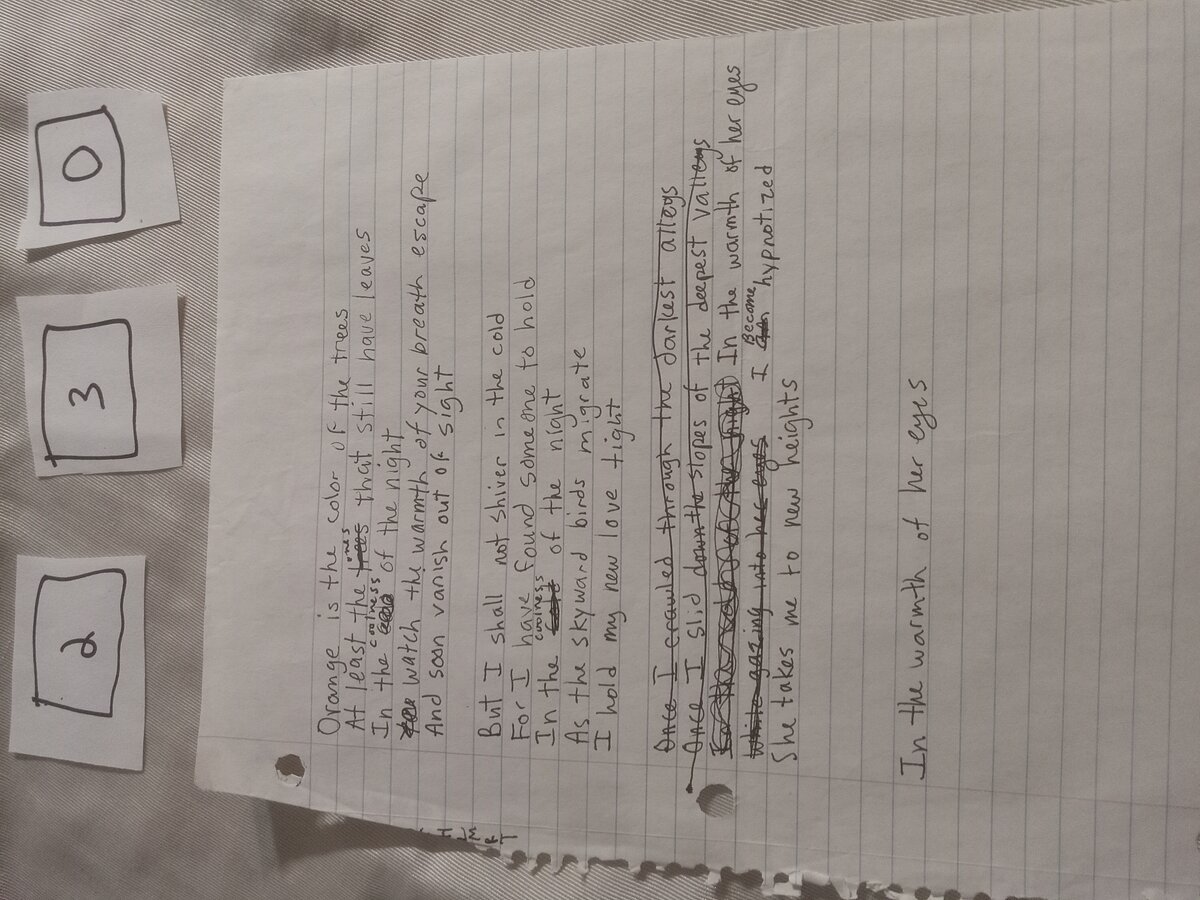 2 3 0
Orange is the color of the trees
At least the trees ones that still have leaves
In the cold coolness of the night
watch the warmth of your breath escape
And soon vanish out of sight
But I shall not shiver in the cold
For I have found someone to hold
In the coolness of the night
As the skyward birds migrate
I hold my new love tight
Once I crawled through the darkest alleys
Once I slid down the slopes of the deepest valleys
In the warmth of her eyes
While gazing into her eyes I become hypnotized
She takes me to new heights
In the warmth of her eyes
H
M
T